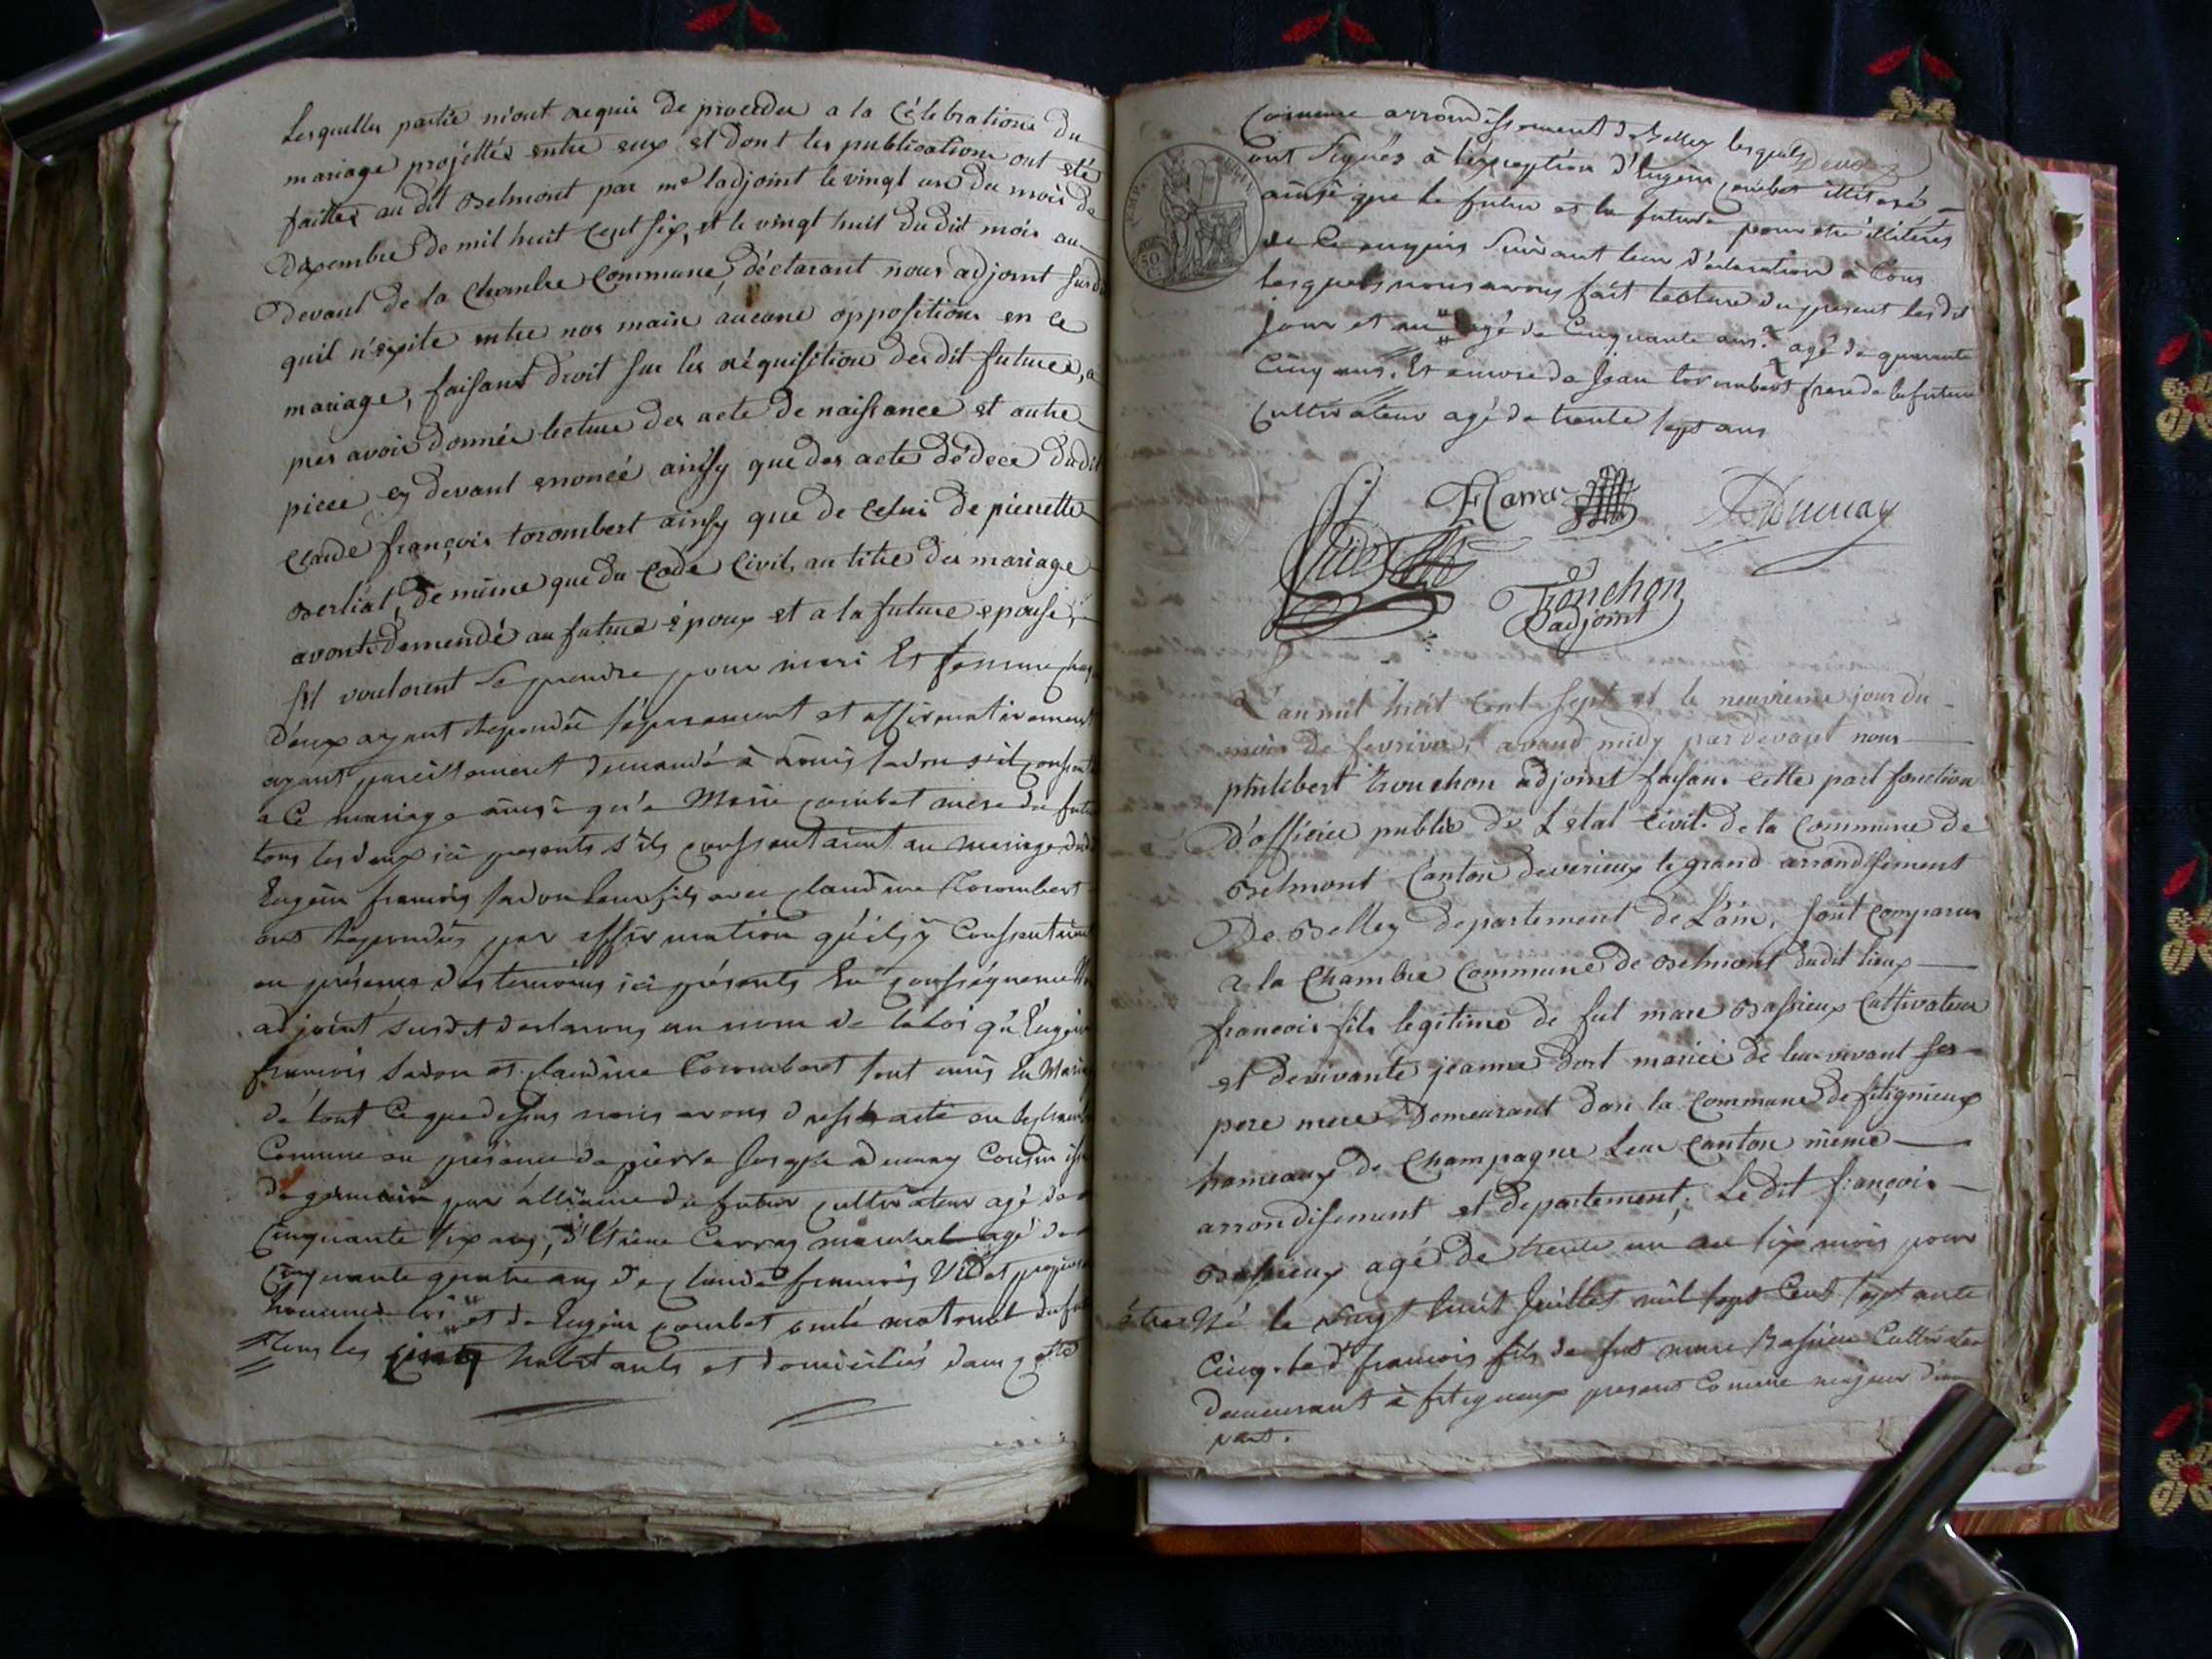 Lesquelles partie m'ont requis de proceder a la Célébrations du
mariage projettés entre eux et dont les publications ont eté
faittes au dit Belmont par me ladjoint le vingt un du mois de
dexembre de mil huit Cent six, et le vingt huit du dit mois au
devant de la Chambre Commune, déclarant nous adjoint susdit
quil n'exite entre nos main aucune oppositions en ce
mariage, faisant droit sur les réquisition des dit futures, a
pres avoir donnée lecture des acte de naissance et autre
piece cy devant enoncé ainsy que des acte de dece dudit
Claude françois torombert ainsy que de Celui de pierrette
Berliat, de même que du Code Civil, au titre du mariage
avont demendé au future époux et a la future epouse,
s'il vouloient se prendre pour mari Et femme
d'eux ayant Repondu séparement et affirmativement
ayant pareillement demandé à Louis
a Ce mariage ainsi qu'a Marie Combet mere du futur
tous les deux ici presents s'ils consentaient au mariage dudit
Eugène françois leur fils avec claudine Torombert
ont Repondus par affirmation qu'ils y Consentaient
en présence des temoins ici présents En conséquence
adjoint susdit declarons au nom de la loi qu'Eugène
francois et claudine Torombert sont unis En Mariage
de tout Ce que dessus nous avons dressé acte
Commune en présence de pierre Joseph Cousin
de germain par alliance du futur cultivateur agé de
Cinquante six ans, d'Etienne Carras agé de
Cinquante quatre ans de Claude françois Videt
et de Eugène Combet oncle maternel du futur
tous les cinq habitants et domiciliés dans cette
Commune arrondissement de Belley lesquels
ont signés à l'exception d'Eugène Combet illiteré
ainsi que le futur et la future pour être illiterés
de Ce enquis suivant leur declaration à tous
lesquels nous avons fait lecture du present les dit
jour et an agé de Cinquante ans agé de quarante
Cinq ans. Et encore de Jean torombert frere de la future
Cultivateur agé de trente sept ans
Carras
Dumay
Videt
Tronchon
adjoint
L'an mil huit Cent sept et le neuvieme jour du
mois de fevrier, avant midy par devant nous
philibert tronchon adjoint faisant cette part fonction
d'officier public de Letat civil de la Commune de
Belmont Canton de virieux le grand arrondisement
De Belley departement de L'ain, sont Comparus
a la Chambre Commune de Belmont dudit lieux
françois fils legitime de fut marc Bassieux Cultivateur
et de vivante jeanne Dort mariei de leur vivant ses
pere mere Demeurant dans la Commune de fitignieux
hameaux de Champagne Leur Canton même
arrondisement et departement, Le dit françois
Bassieux agé de trente un an six mois pour
être Né le vingt huit Juillet mil sept Cent septante
Cinq. led. francois fils de fut marc Bassieu Cultivateur
demeurant à fitignieux present Comme majeur d'une
part.